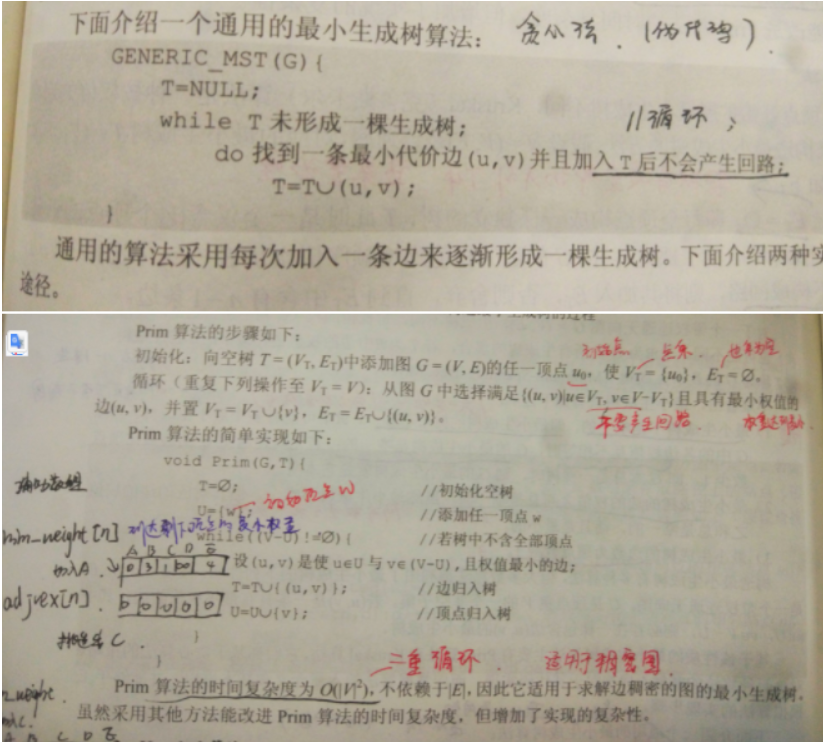 下面介绍一个通用的最小生成树算法： 贪心法．(伪代码)．
GENERIC_MST(G){
T=NULL;
while T 未形成一棵生成树; //循环；
do 找到一条最小代价边(u,v)并且加入 T 后不会产生回路;
T=T∪(u,v);
}
通用的算法采用每次加入一条边来逐渐形成一棵生成树。下面介绍两种实
途径。
Prim 算法的步骤如下：
初始化：向空树 T=(V_T, E_T)中添加图 G=(V, E)的任一顶点 u₀，使 V_T={u₀}，E_T=∅。
循环（重复下列操作至 V_T=V）：从图 G 中选择满足{(u, v)|u∈V_T, v∈V-V_T}且具有最小权值的
不要产生回路．
边(u, v)，并置 V_T=V_T∪{v}，E_T=E_T∪{(u, v)}。
Prim 算法的简单实现如下：
void Prim(G,T){
T=∅; //初始化空树
辅助数组
U={w}; //添加任一顶点 w
min_weight[n]
while((V-U)!=∅){ //若树中不含全部顶点
A B C D E
加入A．
0 3 1 ∞ 4
设(u,v)是使 u∈U 与 v∈(V-U),且权值最小的边;
T=T∪{(u,v)}; //边归入树
adjvex[n]．
0 0 0 0 0
U=U∪{v}; //顶点归入树
}
}
二重循环． 适用于稠密图
Prim 算法的时间复杂度为 O(|V|²)，不依赖于|E|，因此它适用于求解边稠密的图的最小生成树。
虽然采用其他方法能改进 Prim 算法的时间复杂度，但增加了实现的复杂性。